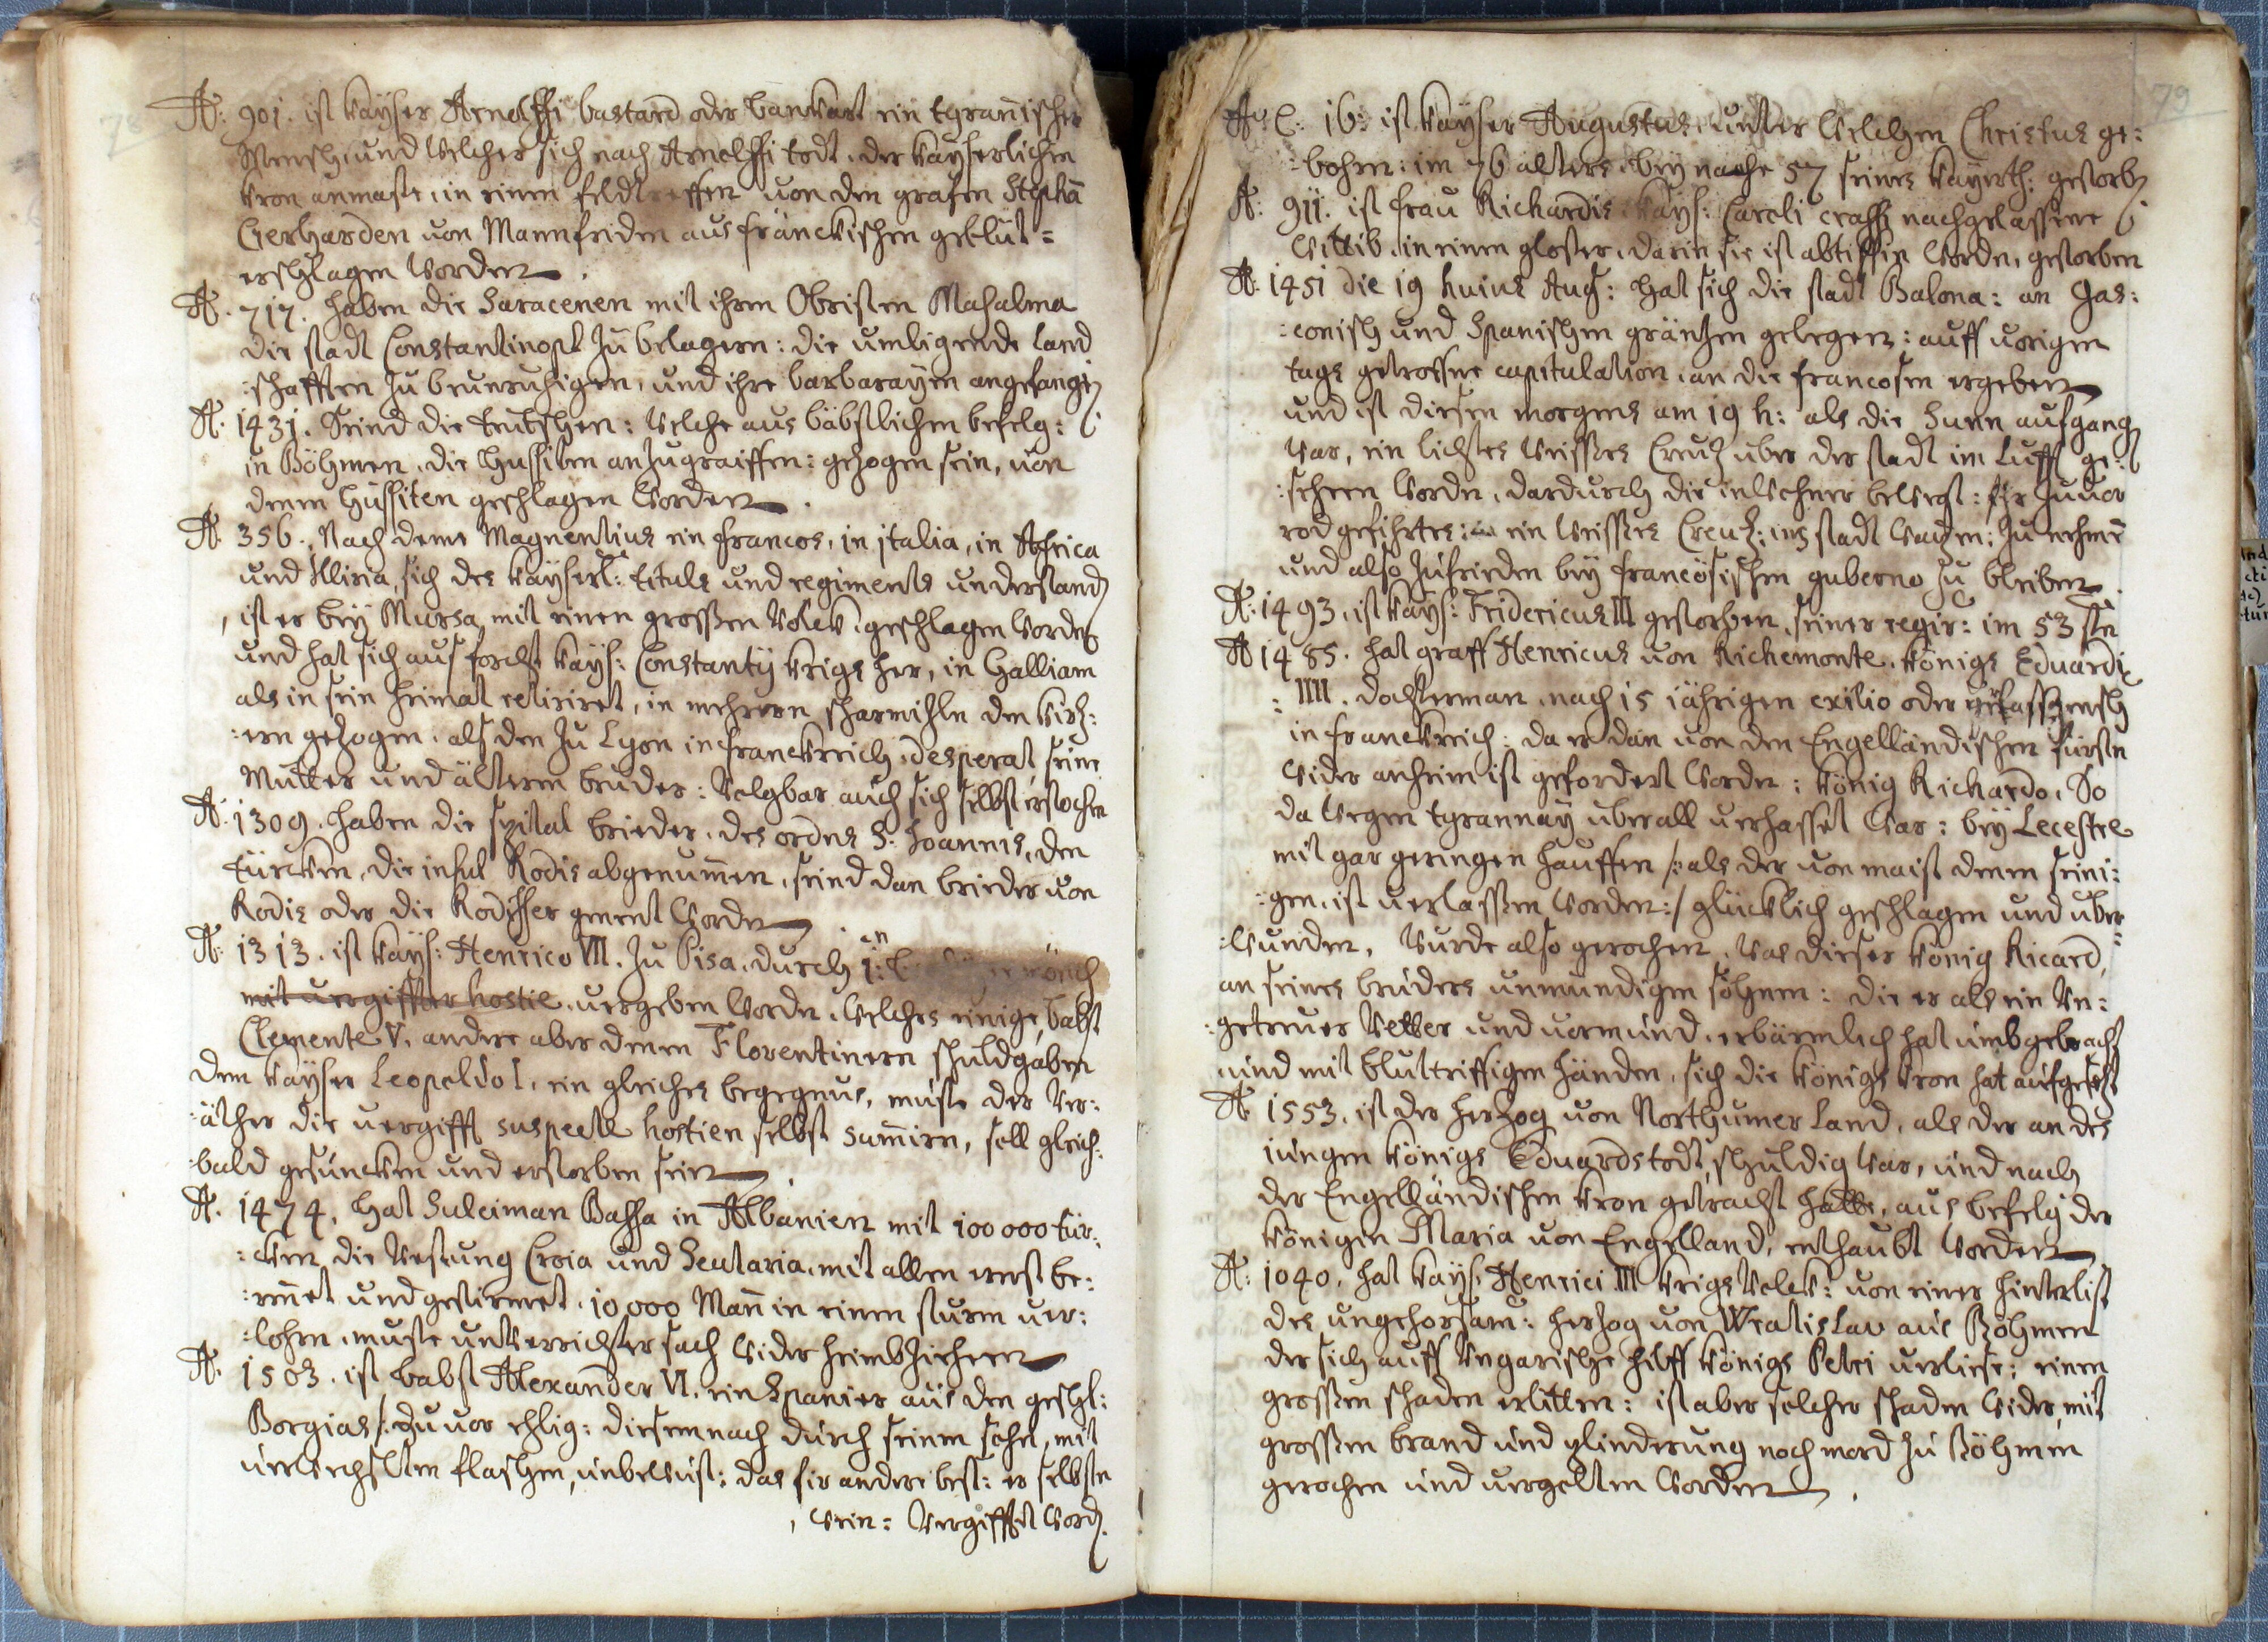 78
A: 901. ist kaÿser Arnolffi bastard oder banckart ein tyrannischer
Mensch, und welcher sich nach Arnolffi todt, der kaÿserlichen
kron anmaste, in einem feldtreffen von den grafen Stephā
Gerharden von Mannfriden aus fränckischen geblüt =
erschlagen worden.
A. 717. haben die Saracenen mit ihrem Obristen Masalma
die stadt Constantinopl zu belagern: die umligende land
:schafften zu beunruhigen, und ihre barbaraÿen angefangen
A. 1431. Seind die teutschen: welche aus bäbstlichen befelg:
in Böhmen, die Hussiten anzugraiffen: gezogen sein, von
denen Hussiten geschlagen worden.
A. 356. Nach deme Magnentius ein francos, in italia, in Africa
und Illiria, sich des kaÿserl: tituls und regiments understand,
ist er beÿ Mursa, mit einen grossen volck, geschlagen worden
und hat sich aus forcht kaÿs: Constantÿ krigs her, in Galliam
als in sein heimat retiriret, in mehrern scharmizln den kirz:
:ern gezogen, als den zu Lyon in franckreich, desperat, seine
Mutter und ältern bruder: auch sich selbst erstochen
A. 1309. haben die spital brieder, des ordens S: Joannis, den
türcken, die insul Rodis abgenummen, seind dan brieder von
Rodis oder die Rodisser genent worden.
A: 1313. ist kaÿs: Henrico VII. zu Pisa, durch mönch
mit vergiffter hostie, vergeben worden, welches einige, babst
Clemente V. andere aber denen Florentinern schuldgaben
dem kaÿser Leopoldo I. ein gleiches begegnus, muste der ver:
:äther die vergifft suspecte hostien selbst sumiren, soll gleich:
:bald gesuncken und erstorben sein.
A. 1474. hat Suleiman Bassa in Albanien mit 100 000 tür:
:cken die vestung Croia und Scutaria, mit allen ernst be:
:rennet und gestirmet, 10 000 Mann in einem sturm ver:
:lohren, muste unverrichter sach wider heimbziehen
A. 1503. ist babst Alexander VI. ein Spanier aus den geschl:
Borgias /: zuvor ehlig: diesemnach durch seinen sohn, mit
verwechslten flaschen, unbewust: das fir andere best: er selbsten
, wein: vergifft word.
79
A: C: 16: ist kaÿser Augustus, unter welchen Christus ge:
:bohren: im 76 alters, beÿ nache 57 seines kaÿerth: gestorben
A: 911. ist frau Richardis, kaÿs: Caroli crassi nachgelassene
wittib, in einem closter, darin sie ist abtissin worden, gestorben
A: 1451 die 19 huius Aug: hat sich die stadt Baiona: an Gas:
:conisch und Spanischen gräntzen gelegen: auff vorigen
tags getroffene capitulation, an die francosen ergeben
und ist diesen morgens am 19 h: als die Sunn aufgangen
war, ein lichtes weisses Creutz uber der stadt im Lufft ge:
:sehen worden, dardurch die inwohner bewegt: ihr zuvor
rod gefihrtes: ein weisses Creutz: ins stadt wapen: zu nehmen
und also zufrieden beÿ francösischen guberno zu bleiben.
A: 1493. ist kaÿs: Fridericus III gestorben, seiner regir: im 53 sten
A 1485. hat graff Henricus von Richemonte, königs Eduardi
: IIII. dochterman, nach 15 iährigen exilio oder
in franckreich: da er dan von den Engelländischen fürsten
wider anheim ist gefordert worden: König Richardo, so
da wegen tyrannaÿ uberall verhasset war: beÿ Lecestre
mit gar geringen hauffen /: als der von maist denen seini:
:gen, ist verlassen worden :/ glücklich geschlagen und uber=
:wunden, wurde also gerochen, was dieser könig Ricard,
an seines bruders unmündigen söhnen: die er als ein un:
:getreuer Vetter und vormund, erbärmlich hat umbgebracht
und mit bluttriffigen händen, sich die königs kron hat aufgesetzt
A. 1553. ist der herzog von Northumer Land, als der an des
jungen königs Eduards todt schuldig war, und nach
der Engelländischen kron getracht hatte, aus befelg der
königin Maria von Engelland, enthaubt worden
A: 1040. hat kaÿs: Henrici III krigs volck: von einer hinterlist
des ungehorsam: herzog von Wratislau aus Böhmen
der sich auff ungarische hilff königs Petri verliese: einen
grossen schaden erlitten: ist aber solcher schaden wider, mit
grossen brand und plinderung noch mord zu Böhmen
gerochen und vergolten worden.